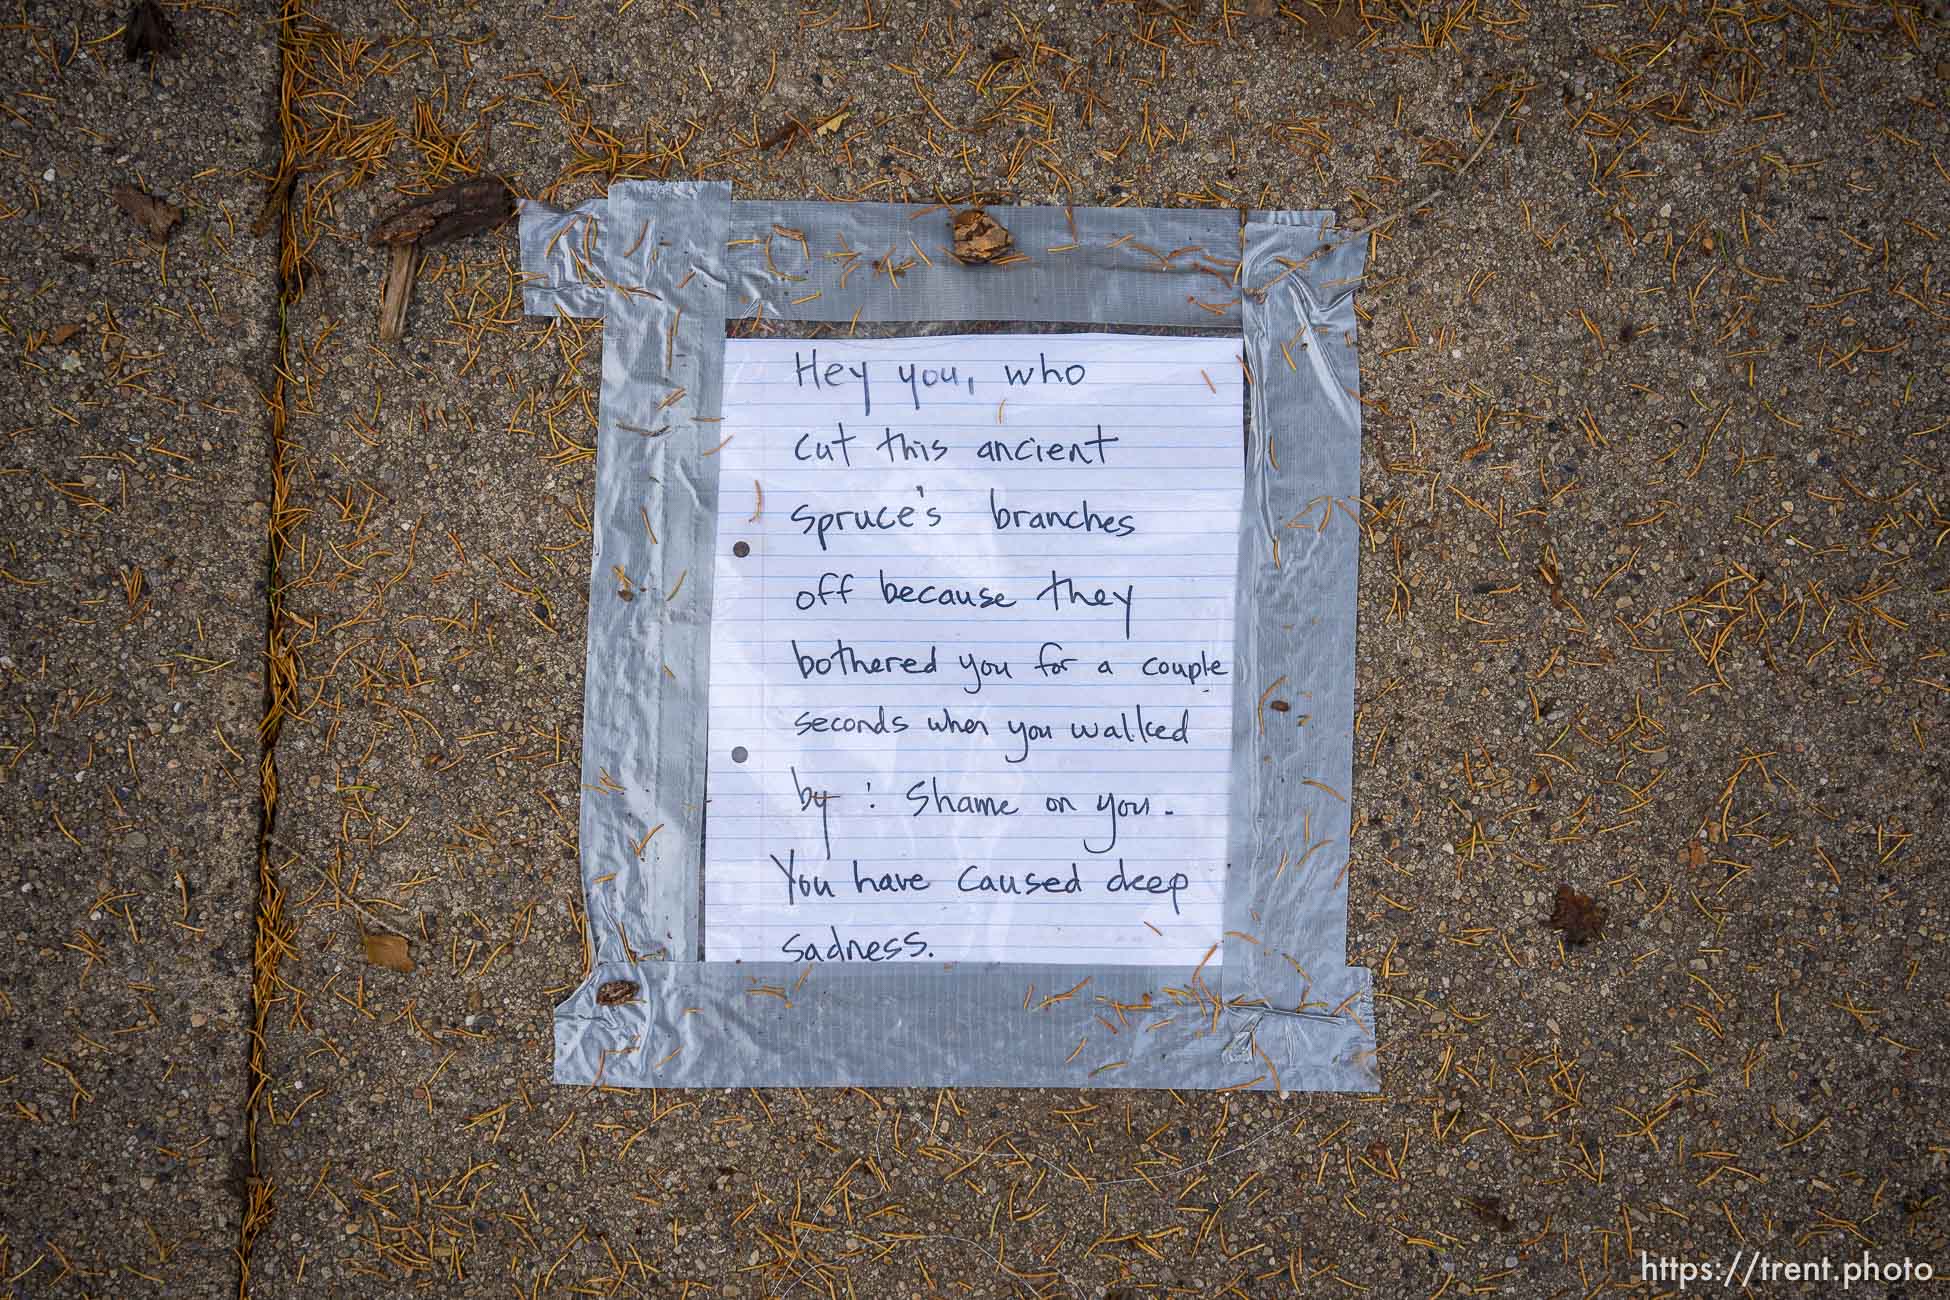 Hey you, who
cut this ancient
spruce's branches
off because they
bothered you for a couple
seconds when you walked
by : Shame on you.
You have caused deep
sadness.
https://trent.photo